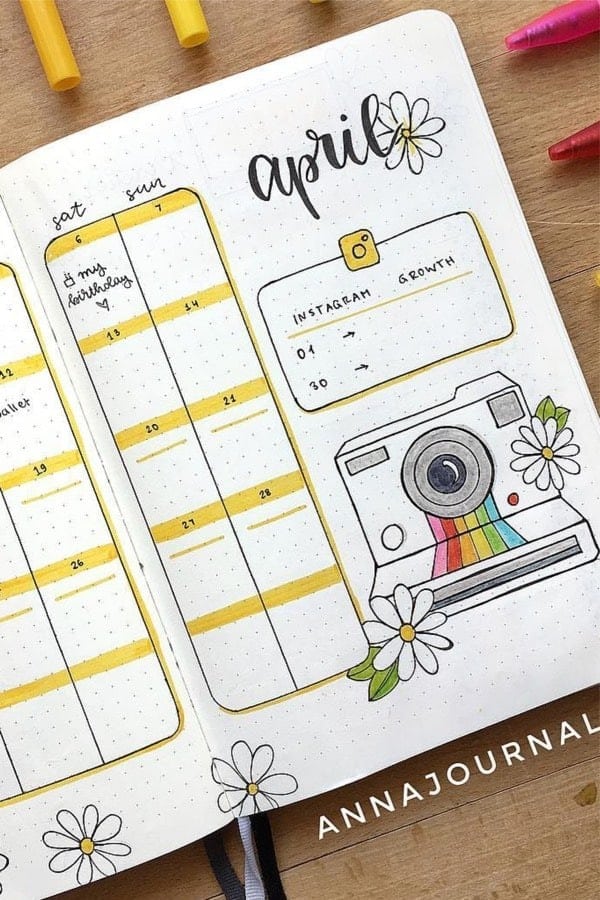 april
sat sun
6 7
my
birthday
13 14
12
19
20 21
26
27 28
INSTAGRAM GROWTH
01 →
30 →
ANNAJOURNAL